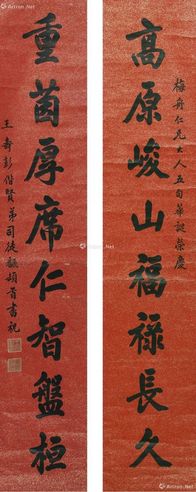 梅舟仁兄大人五旬華誕榮慶
高原峻山福祿長久
重茵厚席仁智盤桓
王壽彭偕賢弟司徒頴頓首書祝